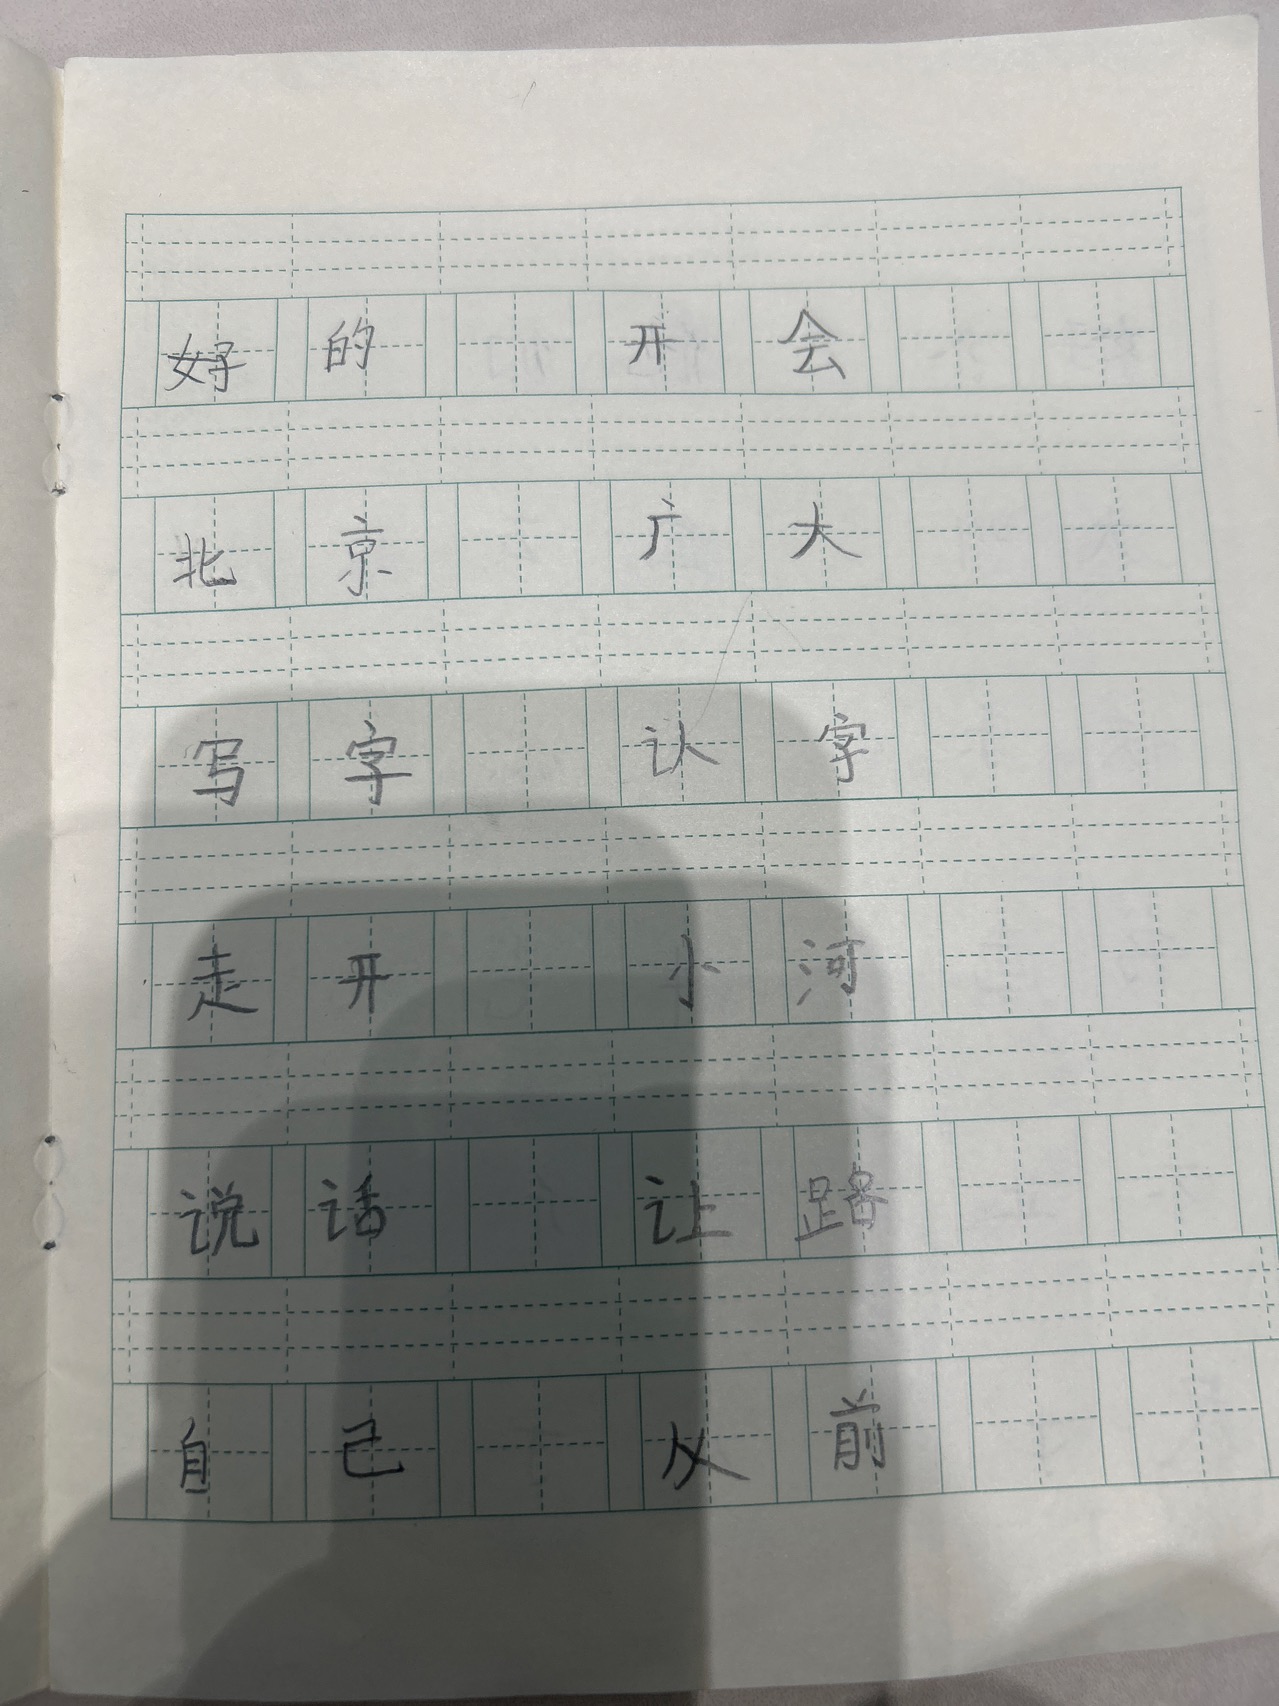 好的 开会
北京 广大
写字 认字
走开 小河
说话 让路
自己 从前